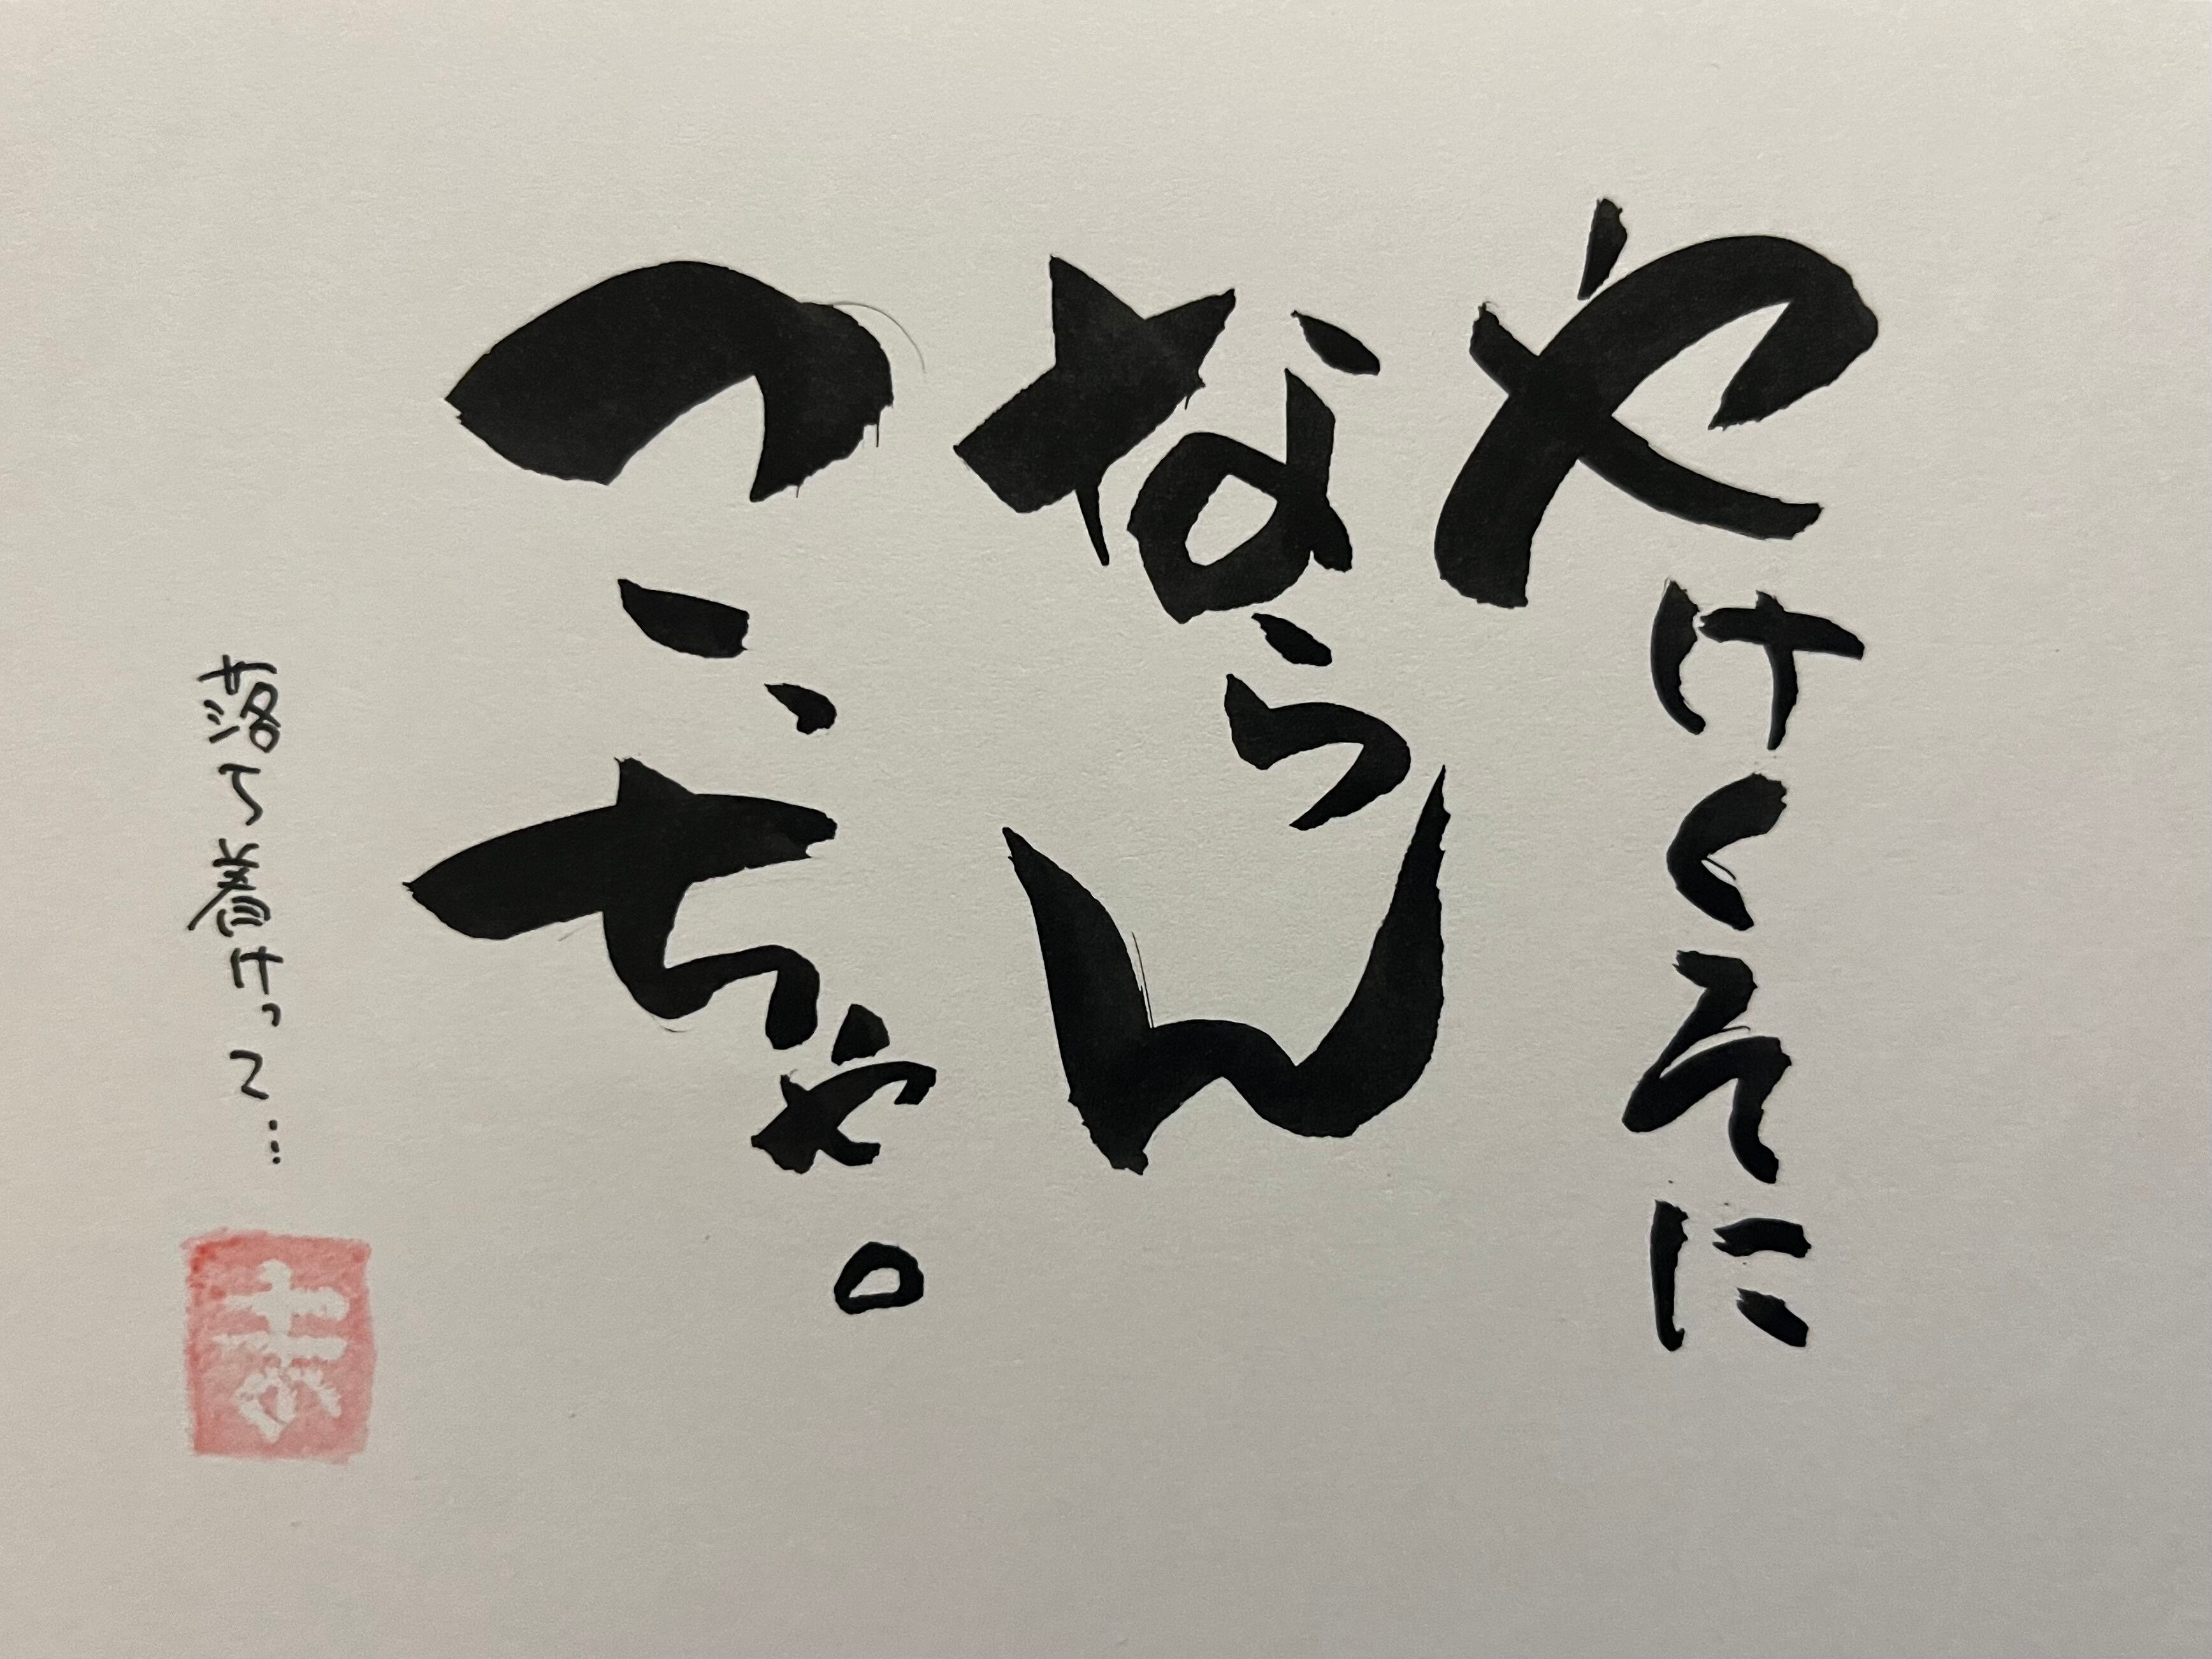 やけくそに
ならん
こっちゃ。
落ち着けって…